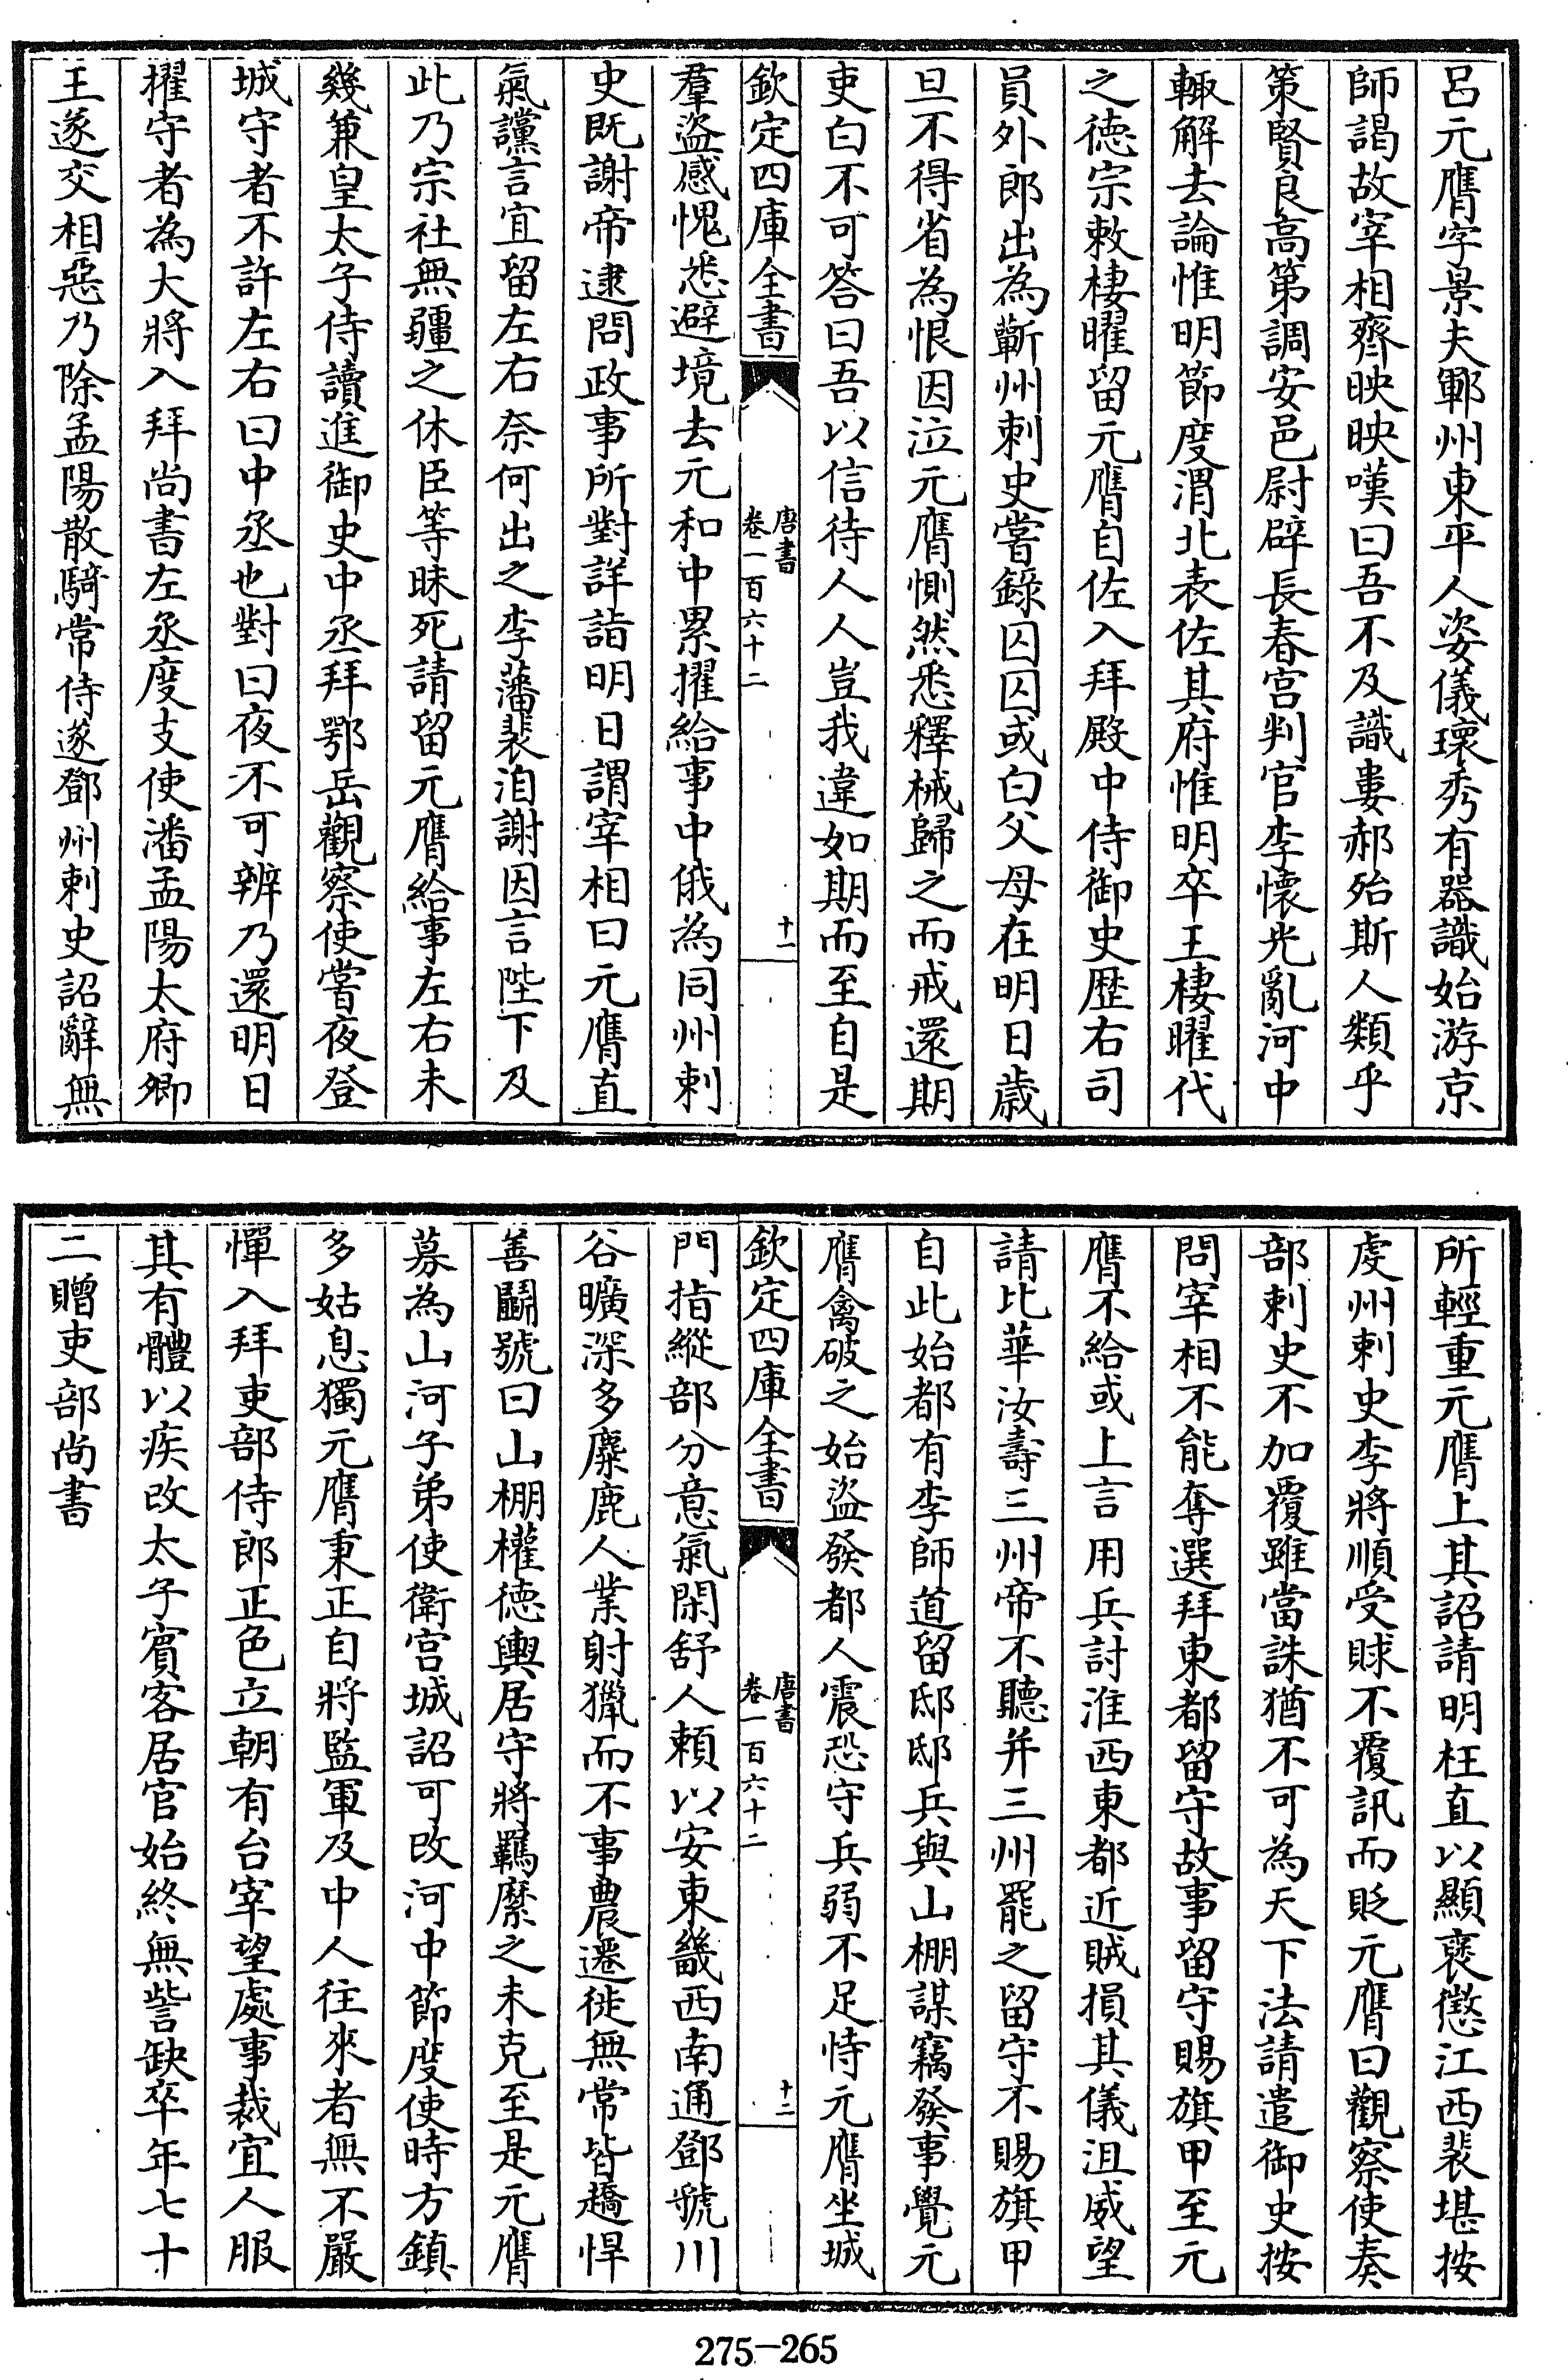 呂元膺字景夫鄆州東平人姿儀瓌秀有器識始游京
師謁故宰相齊映映嘆曰吾不及識婁郝殆斯人類乎
策賢良高第調安邑尉辟長春宫判官李懷光亂河中
輙解去論惟明節度渭北表佐其府惟明卒王棲曜代
之徳宗敕棲曜留元膺自佐入拜殿中侍御史歴右司
員外郎出為蘄州刺史嘗錄囚囚或白父母在明日歳
旦不得省為恨因泣元膺惻然悉釋械歸之而戒還期
吏白不可答曰吾以信待人人豈我違如期而至自是
欽定四庫全書
唐書
卷一百六十二
十一
羣盜感愧悉避境去元和中累擢給事中俄為同州刺
史既謝帝逮問政事所對詳詣明日謂宰相曰元膺直
氣讜言宜留左右奈何出之李藩裴洎謝因言陛下及
此乃宗社無疆之休臣等昧死請留元膺給事左右未
幾兼皇太子侍讀進御史中丞拜鄂岳觀察使嘗夜登
城守者不許左右曰中丞也對曰夜不可辨乃還明日
擢守者為大將入拜尚書左丞度支使潘孟陽太府卿
王遂交相惡乃除孟陽散騎常侍遂鄧州刺史詔辭無
所輕重元膺上其詔請明枉直以顯褒懲江西裴堪按
虔州刺史李將順受賕不覆訊而貶元膺曰觀察使奏
部刺史不加覆雖當誅猶不可為天下法請遣御史按
問宰相不能奪選拜東都留守故事留守賜旗甲至元
膺不給或上言用兵討淮西東都近賊損其儀沮威望
請比華汝壽三州帝不聽并三州罷之留守不賜旗甲
自此始都有李師道留邸邸兵與山棚謀竊發事覺元
膺禽破之始盜發都人震恐守兵弱不足恃元膺坐城
欽定四庫全書
唐書
卷一百六十二
十二
門指縱部分意氣閑舒人頼以安東畿西南通鄧虢川
谷曠深多麋鹿人業射獵而不事農遷徙無常皆趫悍
善鬭號曰山棚權徳輿居守將羈縻之未克至是元膺
募為山河子弟使衛宫城詔可改河中節度使時方鎮
多姑息獨元膺秉正自將監軍及中人往來者無不嚴
憚入拜吏部侍郎正色立朝有台宰望處事裁宜人服
其有體以疾改太子賓客居官始終無訾缺卒年七十
二贈吏部尚書
275-265